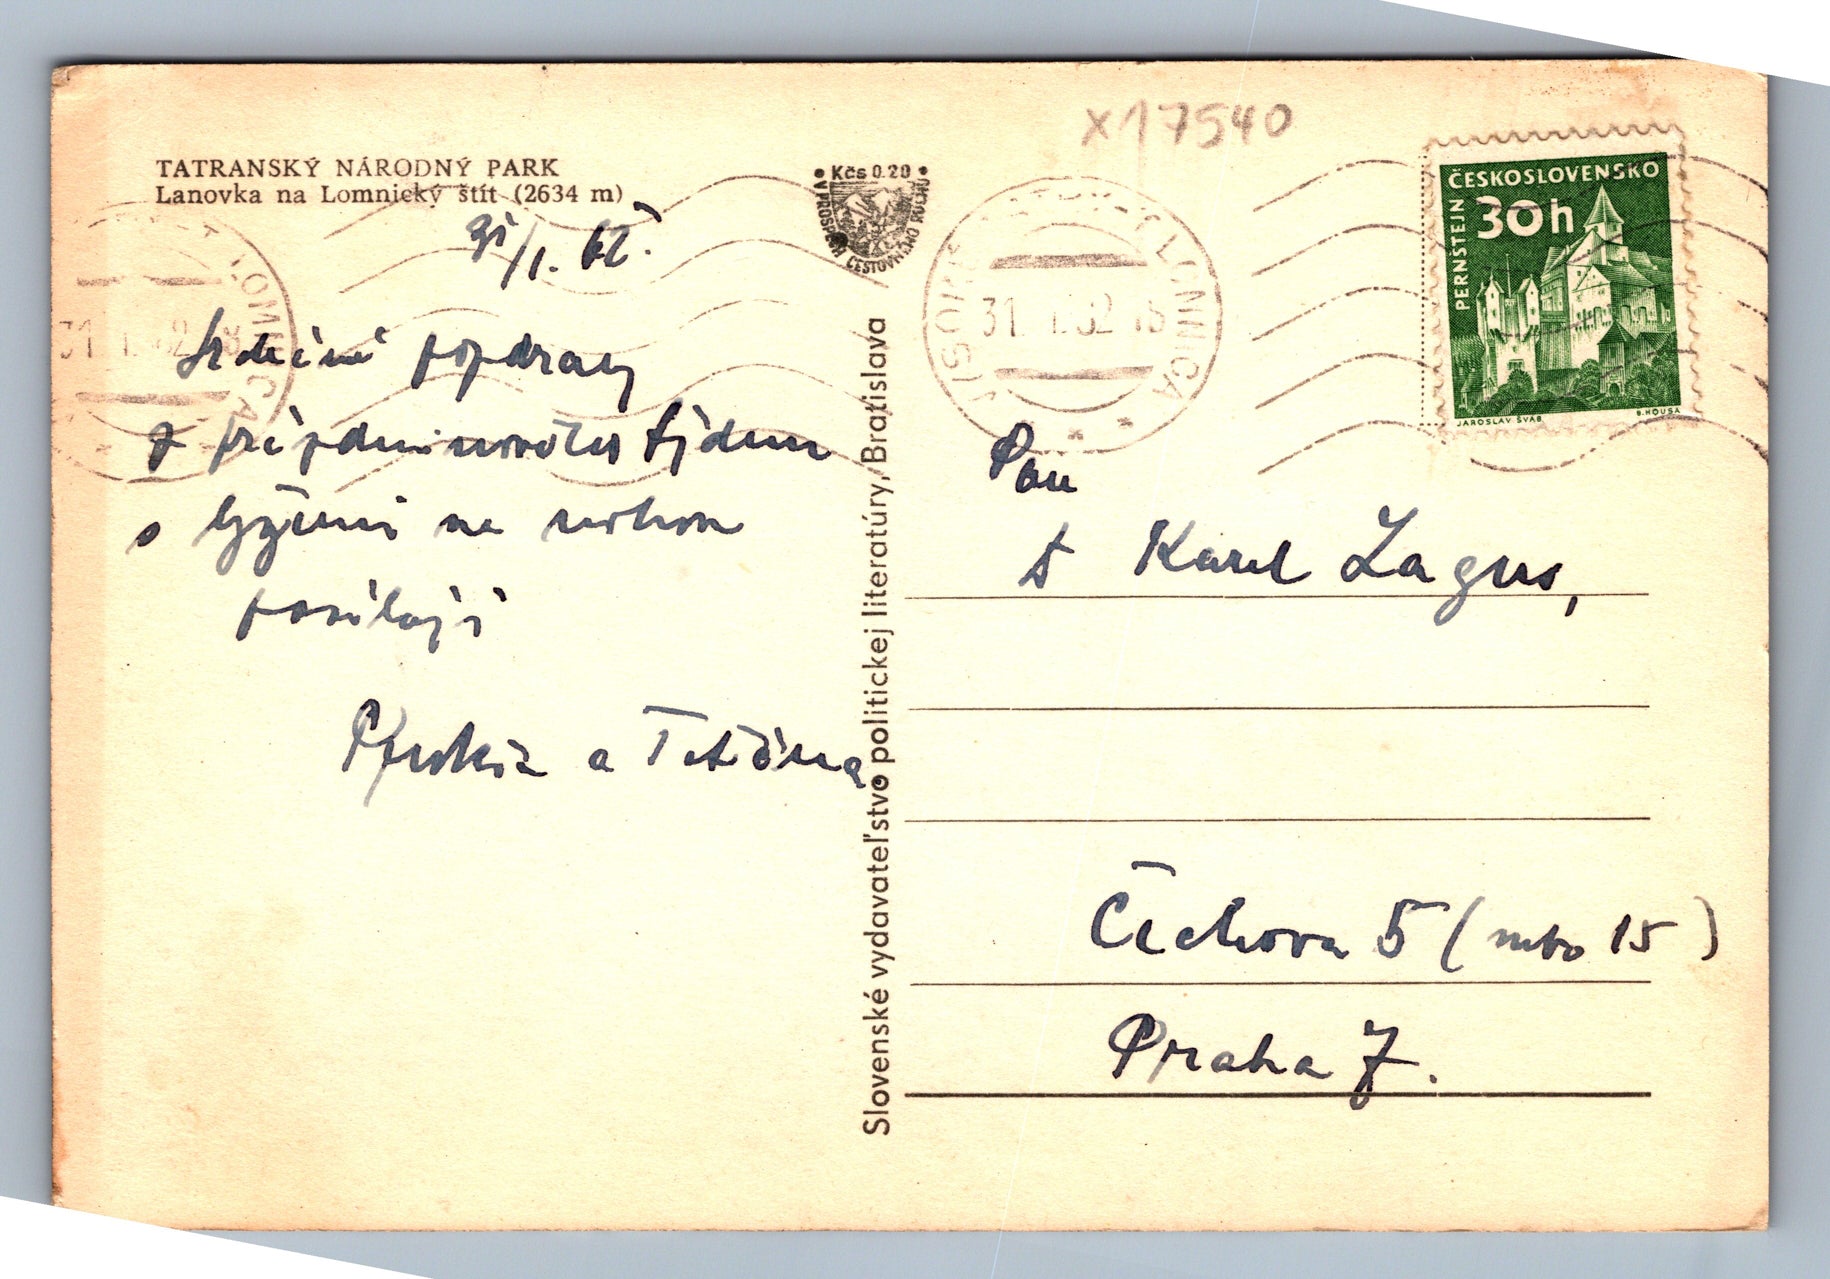 x17540
TATRANSKÝ NÁRODNÝ PARK
Lanovka na Lomnický štít (2634 m)
31/1. 62.
Kčs 0.20
V PROSPECH CESTOVNÉHO RUCHU
VYSOKÉ TATRY-T. LOMNICA
31. 1. 62
ČESKOSLOVENSKO
30h
PERNŠTEJN
JAROSLAV ŠVÁB
B. HOUSA
Srdečné pozdravy
z prázdninového týdnu
s lyžemi na nohou
posílají
a Taťána
Slovenské vydavateľstvo politickej literatúry, Bratislava
Pan
Karel Lagus,
Čechova 5 (nebo 15)
Praha 7.